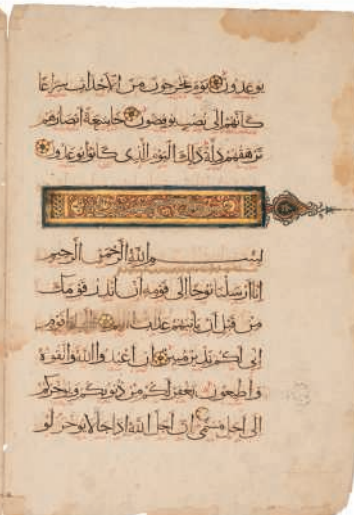 يوعدون يوم يخرجون من الاجداث سراعا
كانهم الى نصب يوفضون خاشعة ابصارهم
ترهقهم ذلة ذلك اليوم الذي كانوا يوعدون
بسم الله الرحمن الرحيم
انا ارسلنا نوحا الى قومه ان انذر قومك
من قبل ان ياتيهم عذاب ياقوم
انى لكم نذير مبين ان اعبدوا الله واتقوه
واطيعون يغفر لكم من ذنوبكم ويوخركم
الى اجل مسمى ان اجل الله اذا جا لا يوخر لو